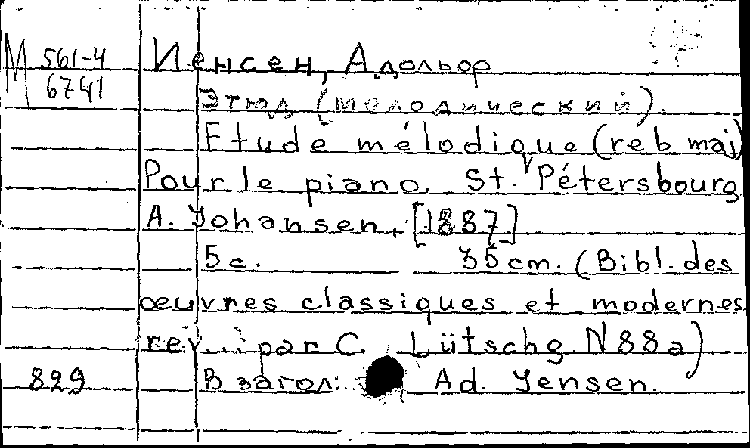 М 561-4
6741
Иенсен, Адольф
Этюд (мелодический).
Etude mélodique (reb maj)
Pour le piano. St. Pétersbourg,
A. Johansen, [1887]
5 c. 35 cm. (Bibl. des
œuvres classiques et modernes
rev. par C. Lütschg N 88a)
829 В загол: Ad. Jensen.